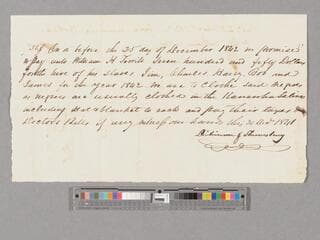 On or before the 25 day of December 1842 we promise
to pay unto William H Tevill Seven hundred and fifty Dollars
for the hire of his Slaves Jim, Charles Harry, Bob and
James for the year 1842. We are to Clothe said Negroes
as negroes are usually clothed in the Kanawha Salines
including Hat & blanket to each and pay their taxes &
Doctors Bills if any witness our hands this 31 Decr 1841
Dickinson & Shrewsbury